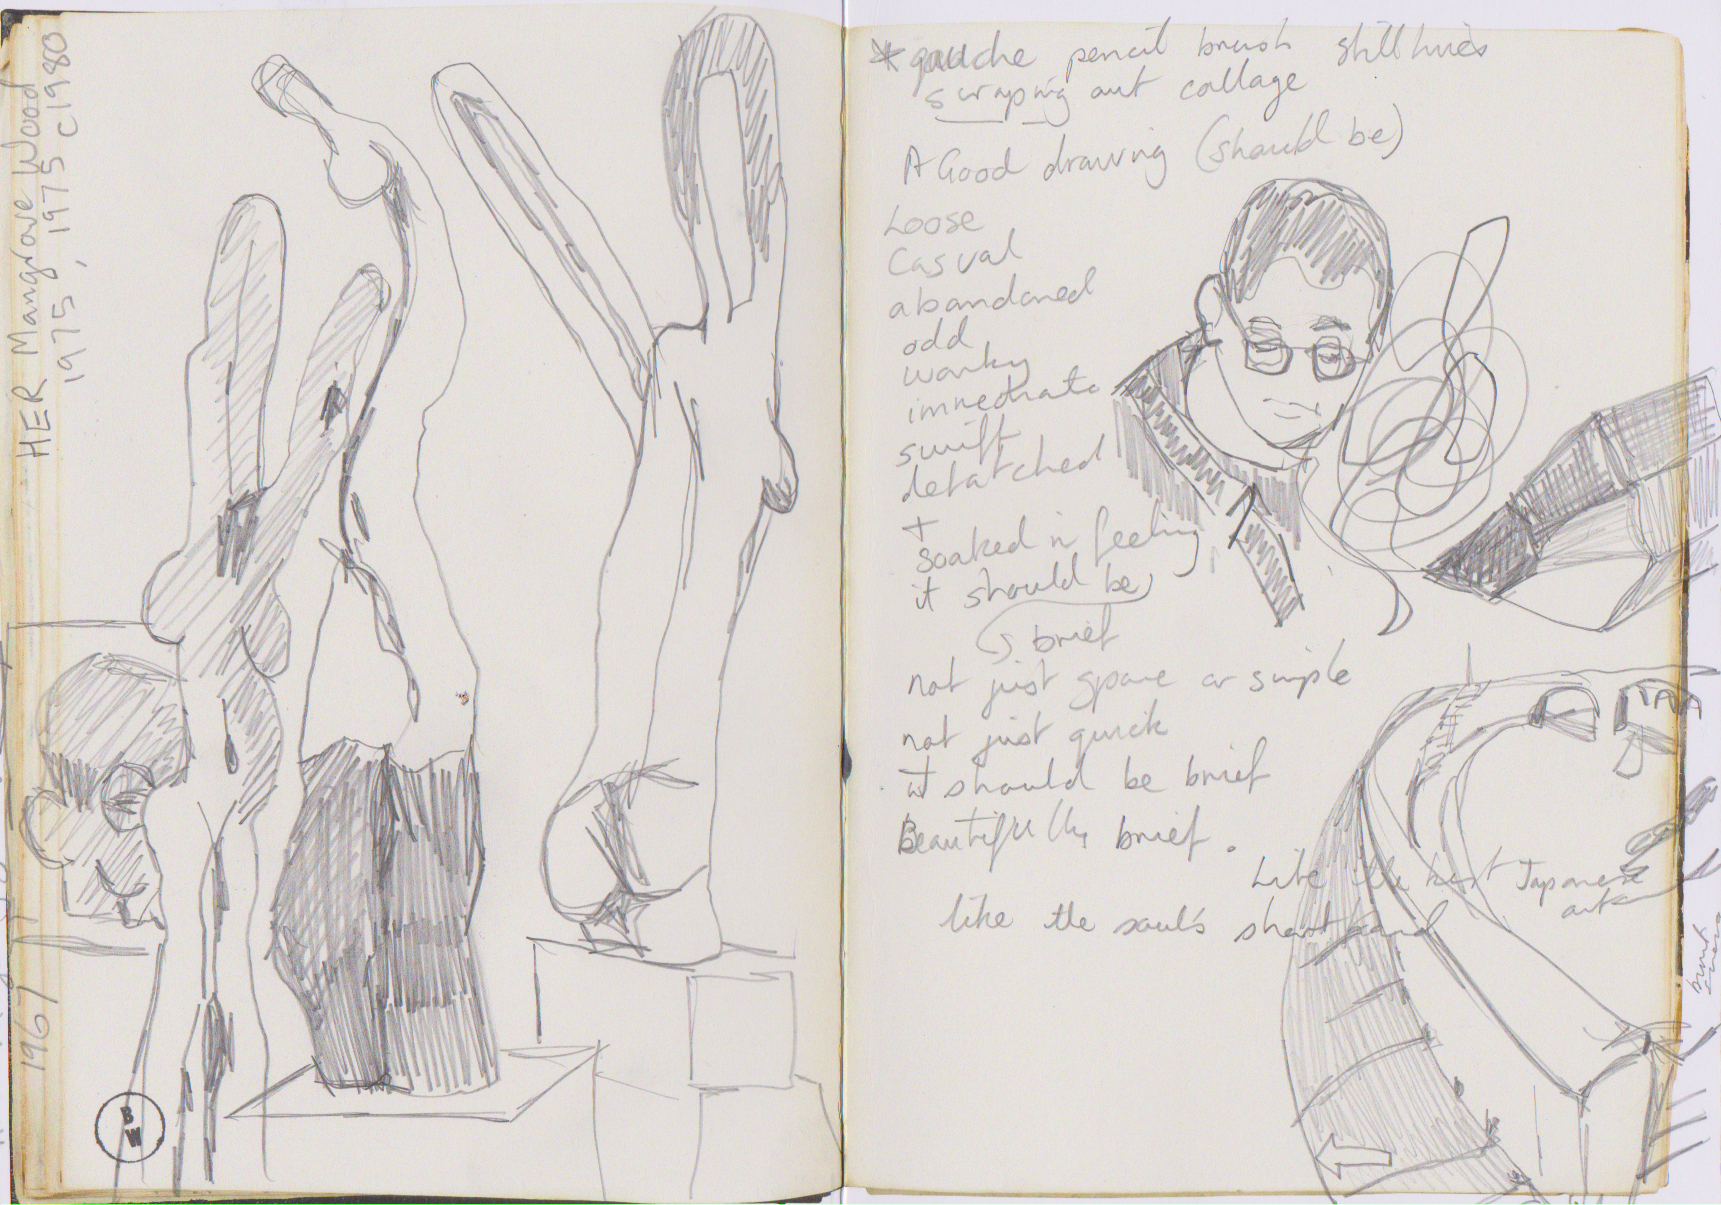 HER Mangrove Wood
1975, 1975 c1980
1967
B
W
* gouache pencil brush still lives
scraping out collage
A Good drawing (should be)
Loose
Casual
abandoned
odd
wonky
immediate
swift
detatched
+
soaked in feeling
it should be
brief
not just spare or simple
not just quick
it should be brief
Beautifully brief.
Like the best Japanese
art
like the soul's short hand